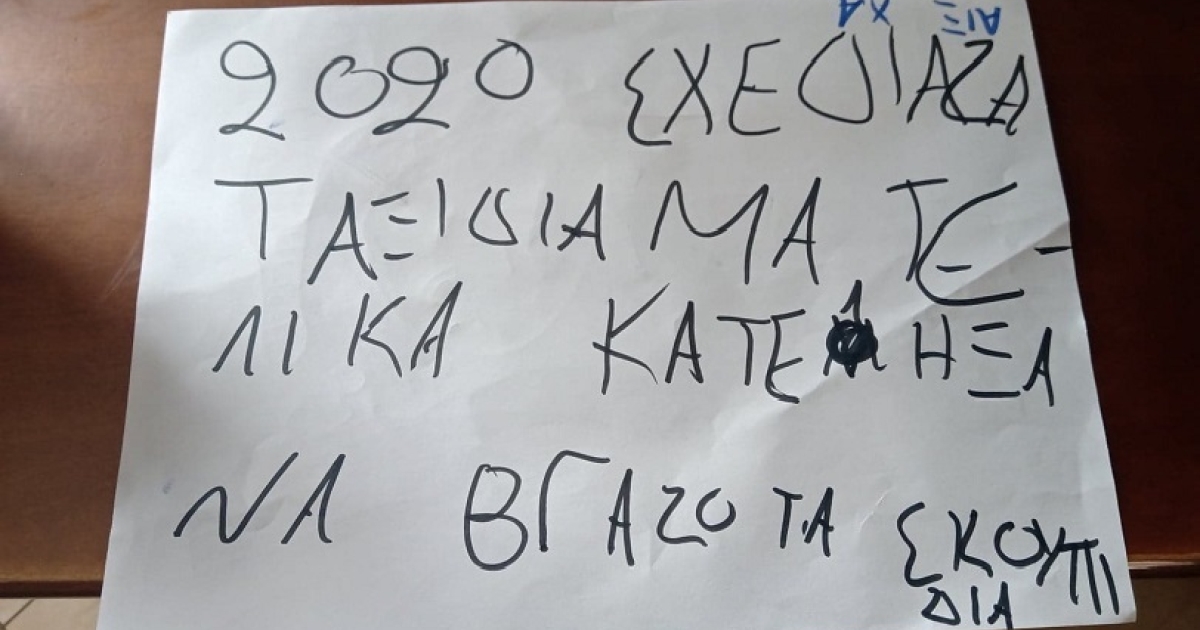 2020 ΣΧΕΔΙΑΖΑ
ΤΑΞΙΔΙΑ ΜΑ ΤΕ-
ΛΙΚΑ ΚΑΤΕΛΗΞΑ
ΝΑ ΒΓΑΖΟ ΤΑ ΣΚΟΥΠΙ
ΔΙΑ